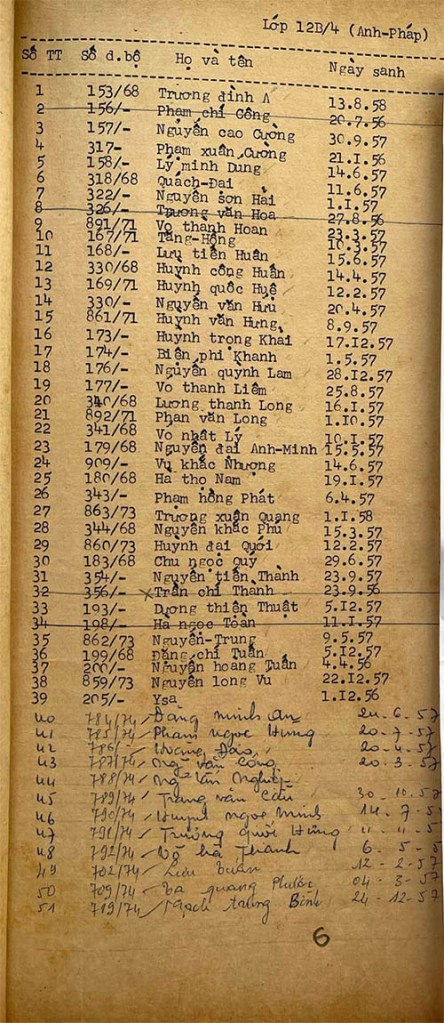 Lớp 12B/4 (Anh-Pháp)
Số TT Số đ.bộ Họ và tên Ngày sanh
1 153/68 Trương đình A 13.8.58
2 156/- Phạm chí Công 20.7.56
3 157/- Nguyễn cao Cường 30.9.57
4 317- Phạm xuân Cường 21.I.56
5 158/- Lý minh Dung 14.6.57
6 318/68 Quách-Đại 11.6.57
7 322/- Nguyễn sơn Hải 1.I.57
8 326/- Trương văn Hoa 27.8.56
9 891/71 Vo thanh Hoan 23.3.57
10 167/71 Tăng-Hồng 10.3.57
11 168/- Lưu tiến Huân 15.6.57
12 330/68 Huynh công Huấn 14.4.57
13 169/71 Huỳnh quốc Huệ 12.2.57
14 330/- Nguyễn văn Hữu 20.4.57
15 861/71 Huỳnh văn Hưng 8.9.57
16 173/- Huỳnh trọng Khai 17.12.57
17 174/- Biện phi Khanh 1.5.57
18 176/- Nguyễn quỳnh Lam 28.12.57
19 177/- Vo thanh Liêm 25.8.57
20 340/68 Lương thanh Long 16.I.57
21 892/71 Phan văn Long 1.10.57
22 341/68 Vo nhất Lý 10.I.57
23 179/68 Nguyễn đại Anh-Minh 15.5.57
24 909/- Vụ khắc Nhượng 14.6.57
25 180/68 Ha thọ Nam 19.I.57
26 343/- Phạm hồng Phát 6.4.57
27 863/73 Trương xuân Quang 1.I.58
28 344/68 Nguyễn khắc Phú 15.3.57
29 860/73 Huynh đại Quới 12.2.57
30 183/68 Chu ngọc Quý 29.6.57
31 354/- Nguyễn tiến Thành 23.9.57
32 356/- Trần chí Thanh 23.9.56
33 193/- Dương thiên Thuật 5.12.57
34 198/- Ha ngọc Toàn 11.1.57
35 862/73 Nguyễn-Trung 9.5.57
36 199/68 Đặng chí Tuấn 5.12.57
37 200/- Nguyễn hoang Tuấn 4.4.56
38 859/73 Nguyễn long Vu 22.12.57
39 205/- Ysa 1.12.56
40 784/74 Đặng minh 24.6.57
41 785/74 Phạm ngọc Hưng 20-7-57
42 786/- Hoàng Đáo 20-4-57
43 787/74 Ngô văn Công 20.3-57
44 788/74 Ngô văn
45 789/74 văn 30-10.57
46 790/74 Huynh ngọc Minh 14.7-5
47 791/74 Trương quốc Hùng
48 792/74 Võ hà Thanh 6.5-5
49 702/74 Lưu 12-2-57
50 709/74 quang 04-3-57
51 789/74 Mạch trung Bình 24-12-57
6